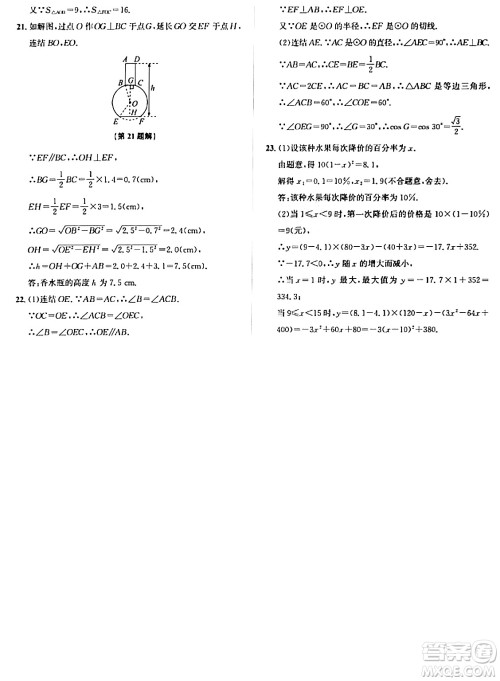 又∵S△AOB=9,∴S△FOC=16.
21. 如解图,过点O作OG⊥BC于点G,延长GO交EF于点H,
连结BO,EO.
A D
B G C
h
O
E H F
【第21题解】
∵EF∥BC,∴OH⊥EF,
∴BG=1/2 BC=1/2×1.4=0.7(cm),
EH=1/2 EF=1/2×3=1.5(cm),
∴GO=√(OB²-BG²)=√(2.5²-0.7²)=2.4(cm),
OH=√(OE²-EH²)=√(2.5²-1.5²)=2.0(cm),
∴h=OH+OG+AB=2.0+2.4+3.1=7.5(cm).
答:香水瓶的高度h为7.5 cm.
22. (1)连结OE.∵AB=AC,∴∠B=∠ACB.
∵OC=OE,∴∠ACB=∠OEC,
∴∠B=∠OEC,∴OE∥AB.
∵EF⊥AB,∴OE⊥EF.
又∵OE是⊙O的半径,∴EF是⊙O的切线.
(2)连结AE.∵AC是⊙O的直径,∴∠AEC=90°.
∵AB=AC,∴BE=CE=1/2 BC.
∵AC=2CE,∴AB=BC=AC,∴△ABC是等边三角形,
∴∠ACE=60°,∴∠COE=60°.
∵∠OEG=90°,∴∠G=30°,∴cos G=cos 30°=√3/2.
23. (1)设该种水果每次降价的百分率为x.
由题意,得10(1-x)²=8.1,
解得x₁=0.1=10%,x₂=1.9(不合题意,舍去).
答:该种水果每次降价的百分率为10%.
(2)当1≤x<9时,第一次降价后的价格为10×(1-10%)
=9(元),
∴y=(9-4.1)(80-3x)-(40+3x)=-17.7x+352.
∵-17.7<0,∴y随x的增大而减小,
∴当x=1时,y有最大值,y最大=-17.7×1+352=
334.3;
当9≤x<15时,y=(8.1-4.1)×(120-x)-(3x²-64x+
400)=-3x²+60x+80=-3(x-10)²+380.